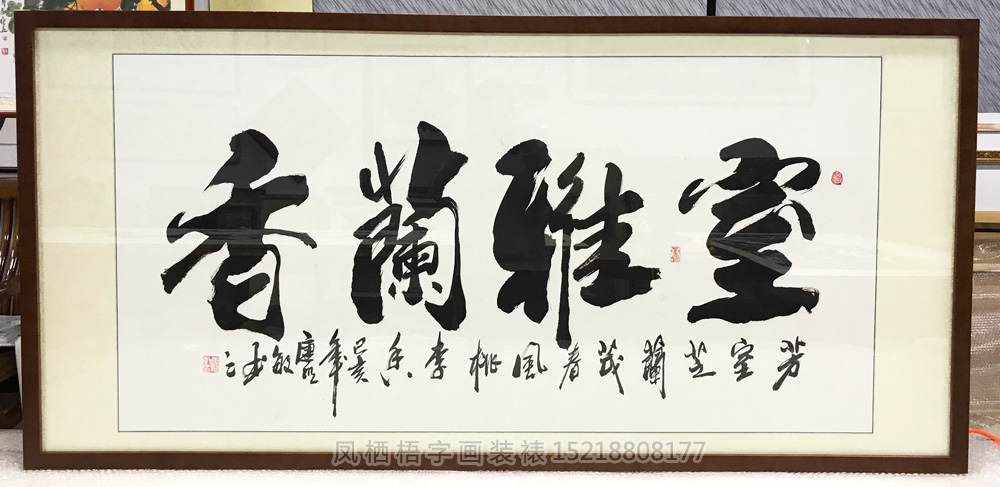 室雅蘭香
芳室芝蘭茂春風桃李香己亥年唐敏
凤栖梧字画装裱15218808177